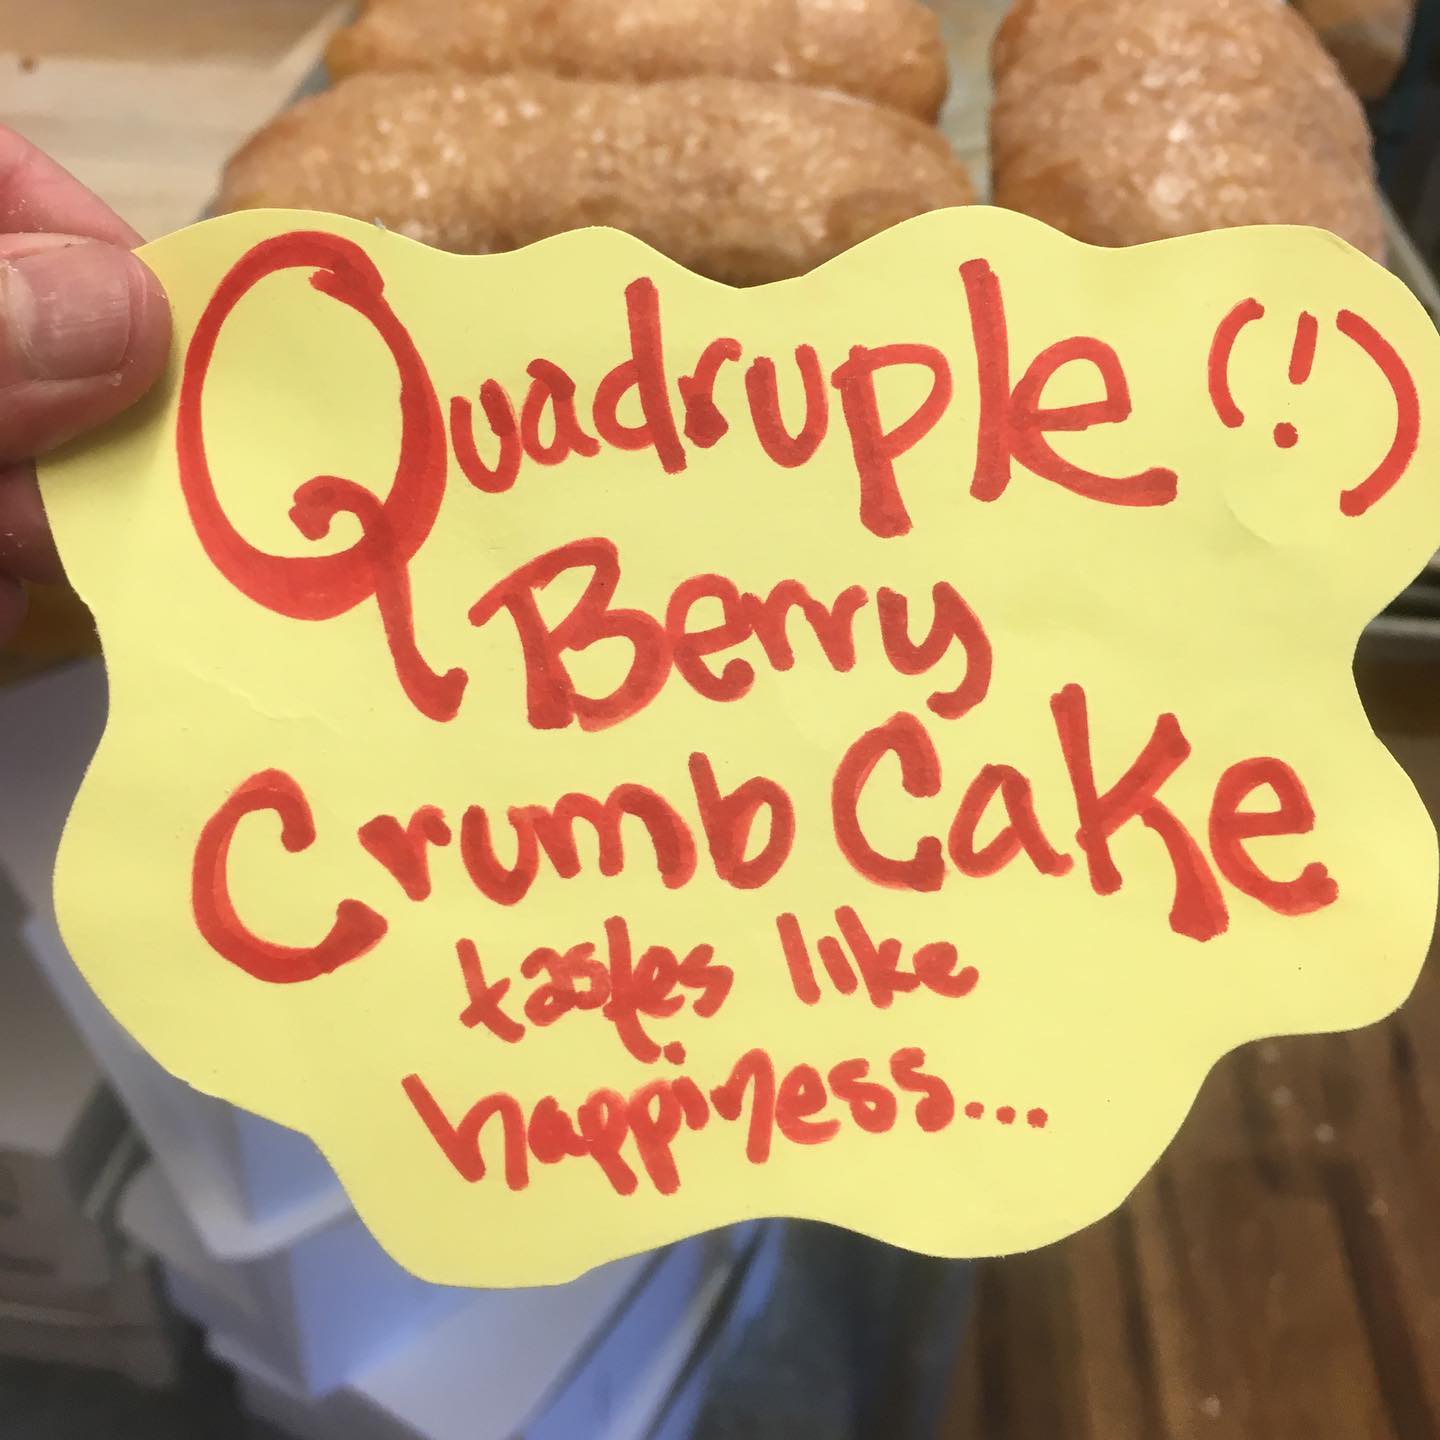 Quadruple (!)
Berry
Crumb Cake
tastes like
happiness...